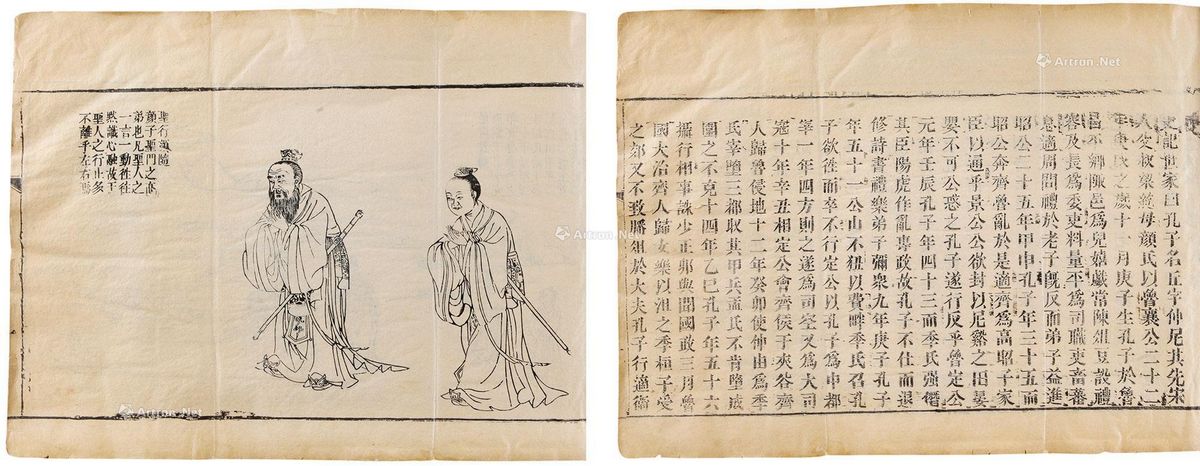 聖行顔隨
顔子聖門之高
弟也凡聖人之
一言一動徃徃
默識心融故于
聖人之行止多
不離乎左右焉
史記世家曰孔子名丘字仲尼其先宋
人父叔梁紇母顔氏以魯襄公二十二
年庚戌之歲十一月庚子生孔子於魯
昌平鄉陬邑爲兒嬉戲當陳俎豆設禮
容及長爲委吏料量平爲司職吏畜蕃
息適周問禮於老子旣反而弟子益進
昭公二十五年甲申孔子年三十五而
昭公奔齊魯亂於是適齊爲高昭子家
臣以通乎景公公欲封以尼谿之田晏
嬰不可公惑之孔子遂行反乎魯定公
元年壬辰孔子年四十三而季氏强僣
其臣陽虎作亂專政故孔子不仕而退
修詩書禮樂弟子彌衆九年庚子孔子
年五十一公山不狃以費畔季氏召孔
子欲徃而卒不行定公以孔子爲中都
宰一年四方則之遂爲司空又爲大司
寇十年辛丑相定公會齊侯于夾谷齊
人歸魯侵地十二年癸卯使仲由爲季
氏宰墮三都收其甲兵孟氏不肯墮成
圍之不克十四年乙巳孔子年五十六
攝行相事誅少正卯與聞國政三月魯
國大治齊人歸女樂以沮之季桓子受
之郊又不致膰俎於大夫孔子行適衞
Artron.Net
Artron.Net
Artron.Net